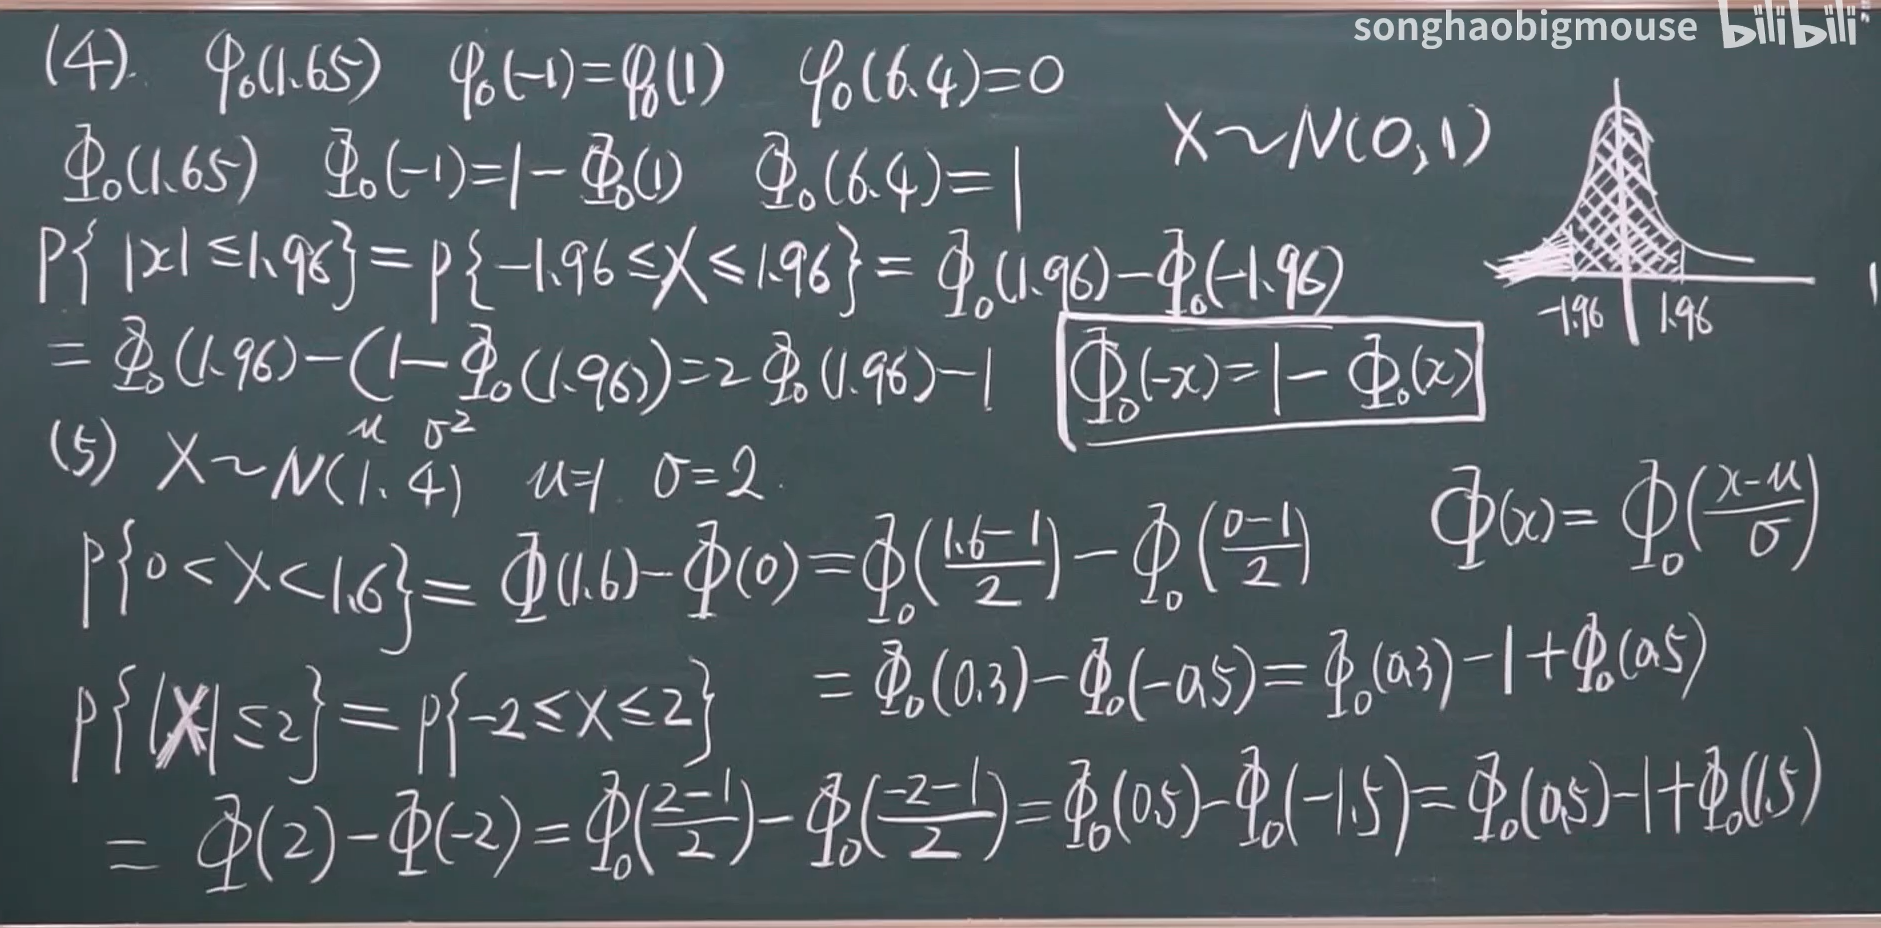 songhaobigmouse bilibili
(4). φ₀(1.65) φ₀(-1)=φ₀(1) φ₀(6.4)=0
X~N(0,1)
Φ₀(1.65) Φ₀(-1)=1-Φ₀(1) Φ₀(6.4)=1
P{|x|≤1.96}=P{-1.96≤X≤1.96}=Φ₀(1.96)-Φ₀(-1.96)
-1.96 1.96
=Φ₀(1.96)-(1-Φ₀(1.96))=2Φ₀(1.96)-1
Φ₀(-x)=1-Φ₀(x)
μ σ²
(5) X~N(1.4) μ=1. σ=2.
Φ(x)=Φ₀((x-μ)/σ)
P{0<X<1.6}=Φ(1.6)-Φ(0)=Φ₀((1.6-1)/2)-Φ₀((0-1)/2)
=Φ₀(0.3)-Φ₀(-0.5)=Φ₀(0.3)-1+Φ₀(0.5)
P{|X|≤2}=P{-2≤X≤2}
=Φ(2)-Φ(-2)=Φ₀((2-1)/2)-Φ₀((-2-1)/2)=Φ₀(0.5)-Φ₀(-1.5)=Φ₀(0.5)-1+Φ₀(1.5)